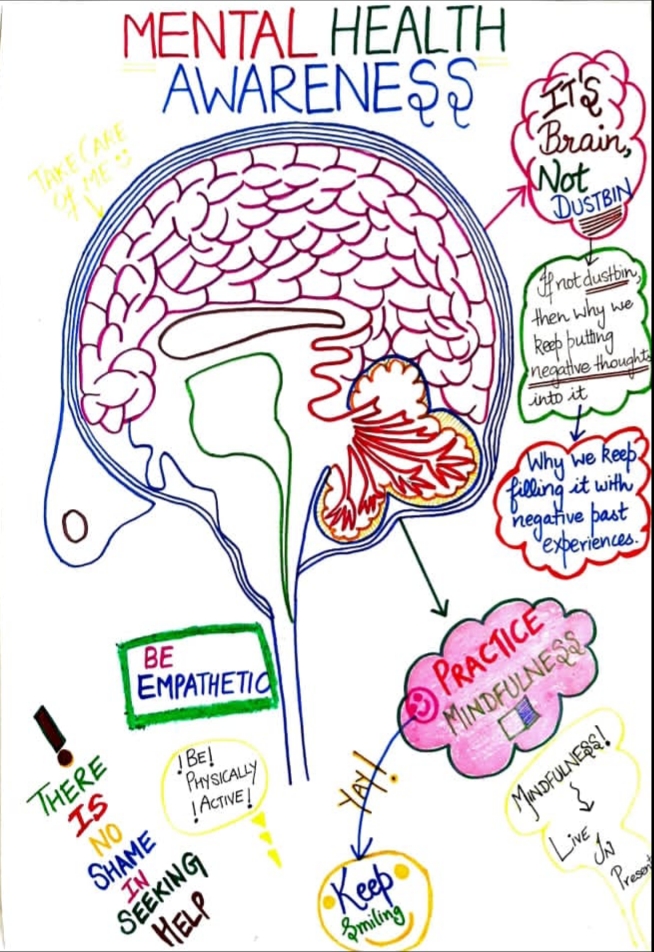 MENTAL HEALTH
AWARENESS
TAKE CARE
of ME
IT'S
Brain,
Not
DUSTBIN
If not dustbin,
then why we
keep putting
negative thoughts
into it
Why we keep
filling it with
negative past
experiences.
PRACTICE
MINDFULNESS
YAY!
Keep
Smiling
MINDFULNESS!
Live
In
Present
BE
EMPATHETIC
! BE!
PHYSICALLY
! ACTIVE!
!
THERE
IS
NO
SHAME
IN
SEEKING
HELP